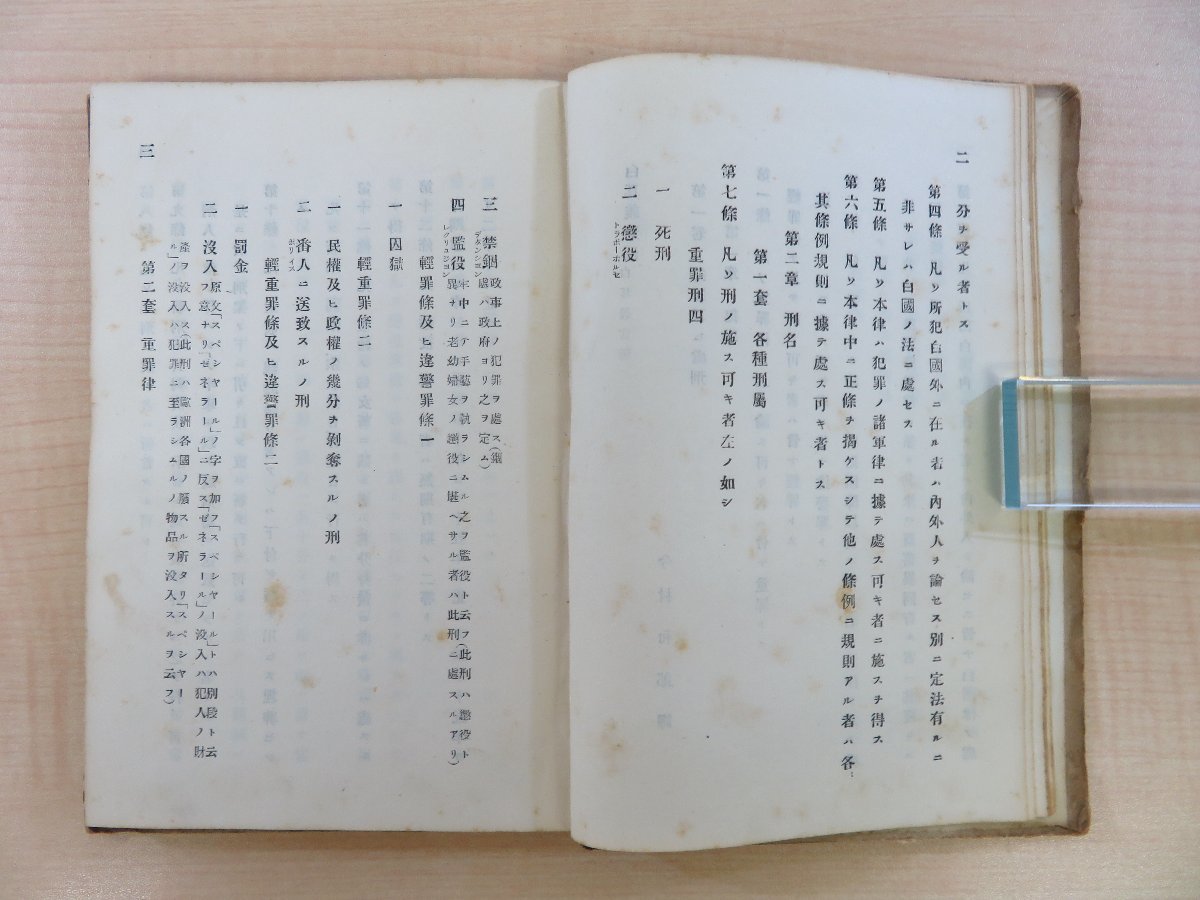 二
分チ受ル者トス
第四條 凡ソ所犯白國外ニ在ル者ハ內外人ヲ論セス別ニ定法有ルニ
非サレハ白國ノ法ニ處セス
第五條 凡ソ本律ハ犯罪ノ諸軍律ニ據テ處ス可キ者ニ施スヲ得ス
第六條 凡ソ本律中ニ正條ヲ揭ケスシテ他ノ條例ニ規則アル者ハ各
其條例規則ニ據テ處ス可キ者トス
第二章 刑名
第一套 各種刑屬
第七條 凡ソ刑ノ施ス可キ者左ノ如シ
重罪刑四
一 死刑
二 懲役 トラボーホルセ
三 禁錮 デタンシヨン 政事上ノ犯罪ヲ處ス(錮
處ハ政府ヨリ之ヲ定ム)
四 監役 レクリユシヨン 牢中ニテ手藝ヲ執ラシムル之ヲ監役ト云フ(此刑ハ懲役ト
異ナリ老幼婦女ノ懲役ニ堪ヘサル者ハ此刑ニ處スルアリ)
輕罪條及ヒ違警罪條一
一 囚獄
輕重罪條二
一 民權及ヒ政權ノ幾分ヲ剝奪スルノ刑
二 番人ニ送致スルノ刑 ポリイス
輕重罪條及ヒ違警罪條二
一 罰金
二 沒入 原文「スペシヤール」ノ字ヲ加フ「スペシヤール」トハ別段ト云
フ意ナリ「ゼネラール」ニ反ス「ゼネラール」ノ沒入ハ犯人ノ財
產ヲ沒入ス(此刑ハ歐洲各國ノ廢スル所タリ「スペシヤー
ル」ノ沒入ハ犯罪ニ至ラシムルノ物品ヲ沒入スルヲ云フ)
第二套 重罪律
三